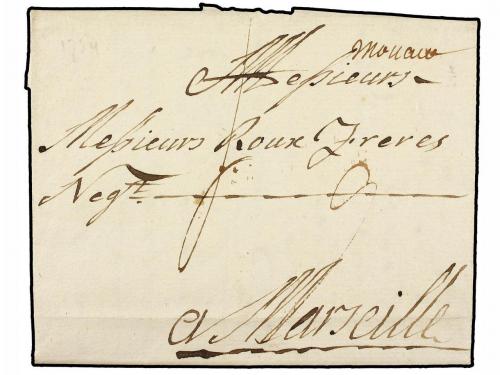 1754
Monaco
Messieurs
Messieurs Roux Freres
Negts
a Marseille